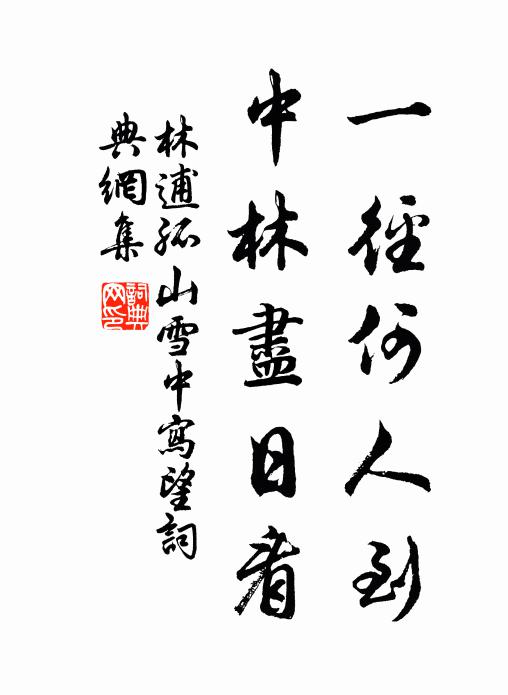 一徑何人到
中林盡日看
林逋孤山雪中寫望詞
典網集
詞典網印